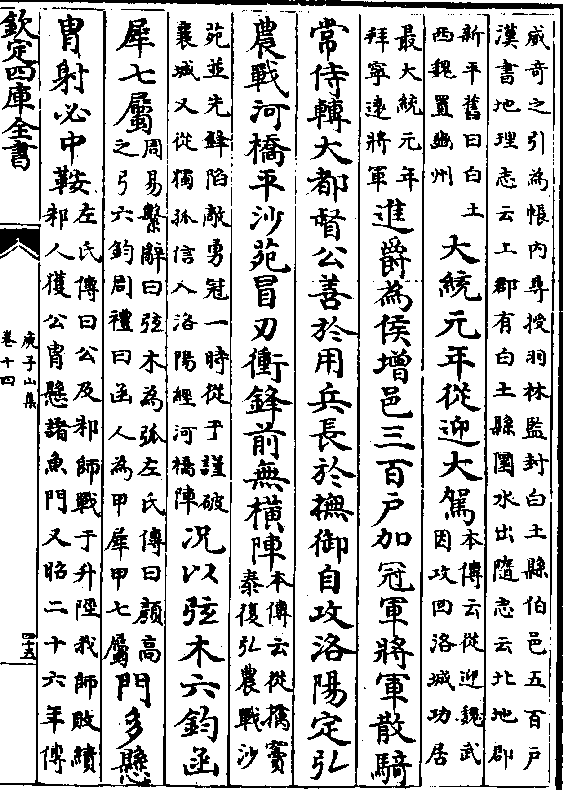 威奇之引為帳內尋授羽林監封白土縣伯邑五百戶
漢書地理志云上郡有白土縣圁水出隨志云北地郡
新平舊曰白土
西魏置豳州
大統元年從迎大駕
本傳云從迎魏武
因攻回洛城功居
最大統元年
拜寧逺將軍
進爵為侯增邑三百戶加冠軍將軍散騎
常侍轉大都督公善於用兵長於撫御自攻洛陽定弘
農戰河橋平沙苑冒刃衝鋒前無橫陣
本傳云從擒竇
泰復弘農戰沙
苑並先鋒陷敵勇冠一時從于謹破
襄城又從獨孤信入洛陽經河橋陣
况以弦木六鈞函
犀七屬
周易繫辭曰弦木為弧左氏傳曰顔高
之弓六鈞周禮曰函人為甲犀甲七屬
門多懸
胄射必中鞍
左氏傳曰公及邾師戰于升陘我師敗績
邾人獲公胄懸諸魚門又昭二十六年傳
欽定四庫全書
庾子山集
卷十四
四十五